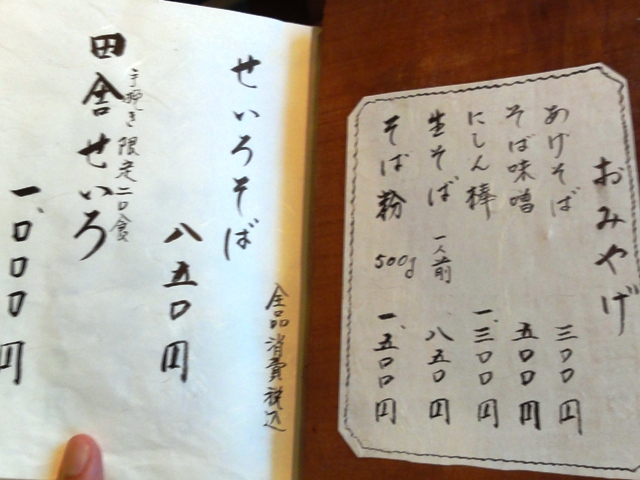 おみやげ
あげそば 三〇〇円
そば味噌 五〇〇円
にしん棒 一、三〇〇円
生そば 一人前 八五〇円
そば粉 500g 一、五〇〇円
全品消費税込
せいろそば
八五〇円
手挽き 限定二〇食
田舎せいろ
一、〇〇〇円